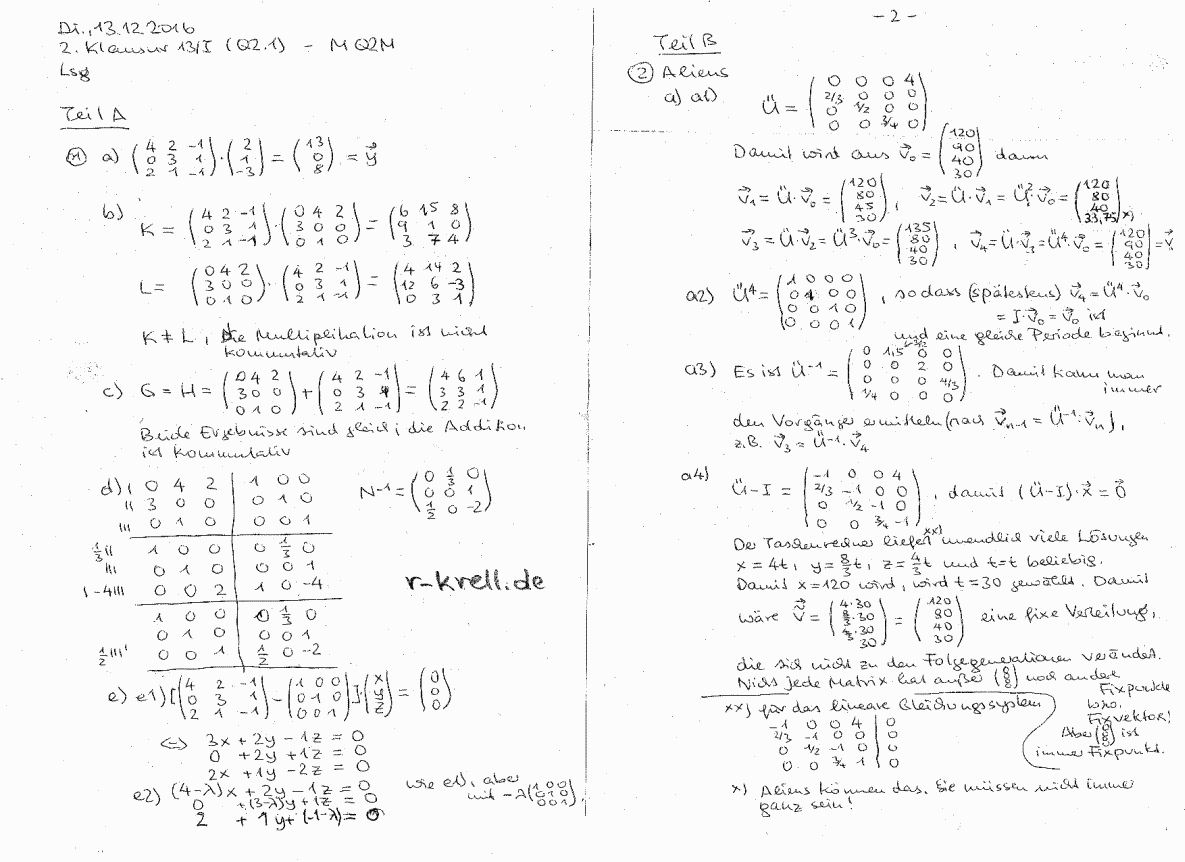 Di., 13.12.2016
2. Klausur 13/I (Q2.1) – M Q2M
Lsg
Teil A
① a) (4 2 -1; 0 3 1; 2 1 -1) · (2; 1; -3) = (13; 0; 8) = y⃗
b) K = (4 2 -1; 0 3 1; 2 1 -1) · (0 4 2; 3 0 0; 0 1 0) = (6 15 8; 9 1 0; 3 7 4)
L = (0 4 2; 3 0 0; 0 1 0) · (4 2 -1; 0 3 1; 2 1 -1) = (4 14 2; 12 6 -3; 0 3 1)
K ≠ L, die Multiplikation ist nicht
kommutativ
c) G = H = (0 4 2; 3 0 0; 0 1 0) + (4 2 -1; 0 3 1; 2 1 -1) = (4 6 1; 3 3 1; 2 2 -1)
Beide Ergebnisse sind gleich; die Addition
ist kommutativ
d) I 0 4 2 | 1 0 0
II 3 0 0 | 0 1 0
III 0 1 0 | 0 0 1
N⁻¹ = (0 1/3 0; 0 0 1; 1/2 0 -2)
1/3 II 1 0 0 | 0 1/3 0
III 0 1 0 | 0 0 1
I-4III 0 0 2 | 1 0 -4
r-krell.de
1 0 0 | 0 1/3 0
0 1 0 | 0 0 1
1/2 III' 0 0 1 | 1/2 0 -2
e) e1) [(4 2 -1; 0 3 1; 2 1 -1) - (1 0 0; 0 1 0; 0 0 1)] (x; y; z) = (0; 0; 0)
⇔ 3x + 2y - 1z = 0
0 + 2y + 1z = 0
2x + 1y - 2z = 0
e2) (4-λ)x + 2y - 1z = 0
0 + (3-λ)y + 1z = 0
2 + 1y + (-1-λ) = 0
wie e1), aber
mit -λ(1 0 0; 0 1 0; 0 0 1).
- 2 -
Teil B
② Aliens
a) a1) Ü = (0 0 0 4; 2/3 0 0 0; 0 1/2 0 0; 0 0 3/4 0)
Damit wird aus v⃗₀ = (120; 90; 40; 30) dann
v⃗₁ = Ü·v⃗₀ = (120; 80; 45; 30), v⃗₂ = Ü·v⃗₁ = Ü²·v⃗₀ = (120; 80; 40; 33,75 x))
v⃗₃ = Ü·v⃗₂ = Ü³·v⃗₀ = (135; 80; 40; 30), v⃗₄ = Ü·v⃗₃ = Ü⁴·v⃗₀ = (120; 90; 40; 30) = v⃗
a2) Ü⁴ = (1 0 0 0; 0 1 0 0; 0 0 1 0; 0 0 0 1), so dass (spätestens) v⃗₄ = Ü⁴·v⃗₀
= I·v⃗₀ = v⃗₀ ist
und eine gleiche Periode beginnt.
a3) Es ist Ü⁻¹ = (0 1,5 0 0; 0 0 2 0; 0 0 0 4/3; 1/4 0 0 0). Damit kann man
immer
den Vorgänger ermitteln (nach v⃗ₙ₋₁ = Ü⁻¹·v⃗ₙ),
z.B. v⃗₃ = Ü⁻¹·v⃗₄
a4) Ü-I = (-1 0 0 4; 2/3 -1 0 0; 0 1/2 -1 0; 0 0 3/4 -1), damit (Ü-I)·x⃗ = 0⃗
Der Taschenrechner liefert xx) unendlich viele Lösungen
x = 4t, y = 8/3 t, z = 4/3 t und t=t beliebig.
Damit x=120 wird, wird t=30 gewählt. Damit
wäre v⃗ = (4·30; 8/3·30; 4/3·30; 30) = (120; 80; 40; 30) eine fixe Verteilung,
die sich nicht zu den Folgegenerationen verändert.
Nicht jede Matrix hat außer (0; 0; 0) noch andere
Fixpunkte
bzw.
Fixvektor!
Aber (0; 0; 0) ist
immer Fixpunkt.
xx) für das lineare Gleichungssystem
-1 0 0 4 | 0
2/3 -1 0 0 | 0
0 1/2 -1 0 | 0
0 0 3/4 1 | 0
x) Aliens können das. Sie müssen nicht immer
ganz sein!